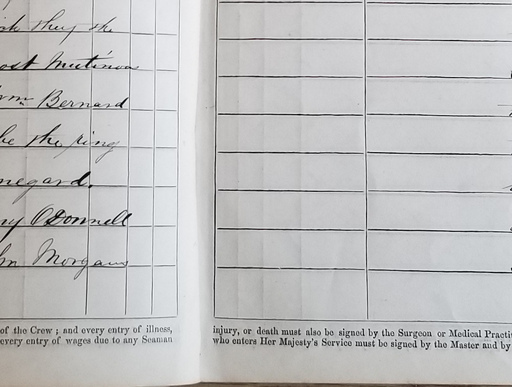 they the
Mutinous
Wm Bernard
be the ring
O'Donnell
Morgan
of the Crew; and every entry of illness,
every entry of wages due to any Seaman
injury, or death must also be signed by the Surgeon or Medical Practi
who enters Her Majesty's Service must be signed by the Master and by